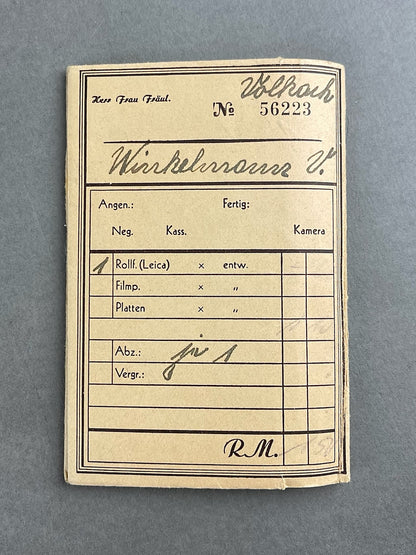 Volkach
Herr Frau Fräul.
№ 56223
Winkelmann V.
Angen.: Fertig:
Neg. Kass. Kamera
1 Rollf. (Leica) x entw.
Filmp. x „
Platten x „
Abz.: je 1
Vergr.:
R.M. 1 50